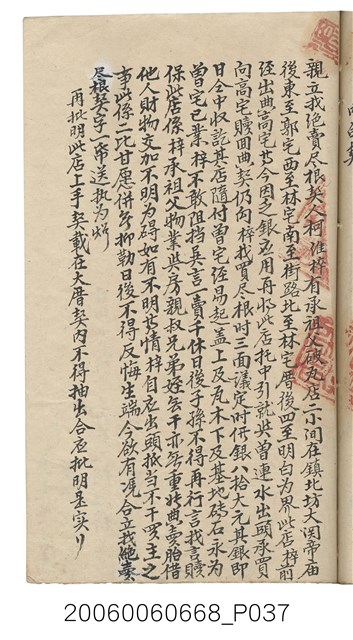 親立找絕賣尽根契人柯淮梓有承祖父破瓦店二小间在鎮北坊大関帝庙
後東至郭宅西至林宅南至街路北至林宅厝後四至明白為界此店梓前
経出典高宅共今因乏銀应用再将此店托中引就與曾連水出頭承買
向高宅贖回典契仍向梓找賣尽根时三面議定时價銀八拾大元其銀即
日仝中收訖其店隨付曾宅任易起盖上及瓦木下及基地砖石永為
曾宅己業梓不敢阻挡異言一賣千休日後子孫不得再行言找言贖
保此店係梓承祖父物業與房親叔兄弟姪無干亦無重典賣胎借
他人財物交加不明為碍如有不明等情梓自应出頭抵当不干買主之
事此係二比甘愿並無抑勒日後不得反悔生端今欲有凭合立找絕賣
尽根契字一帋送执為炤
再批明此店上手契載在大厝契内不得抽出合应批明是实
20060060668_P037